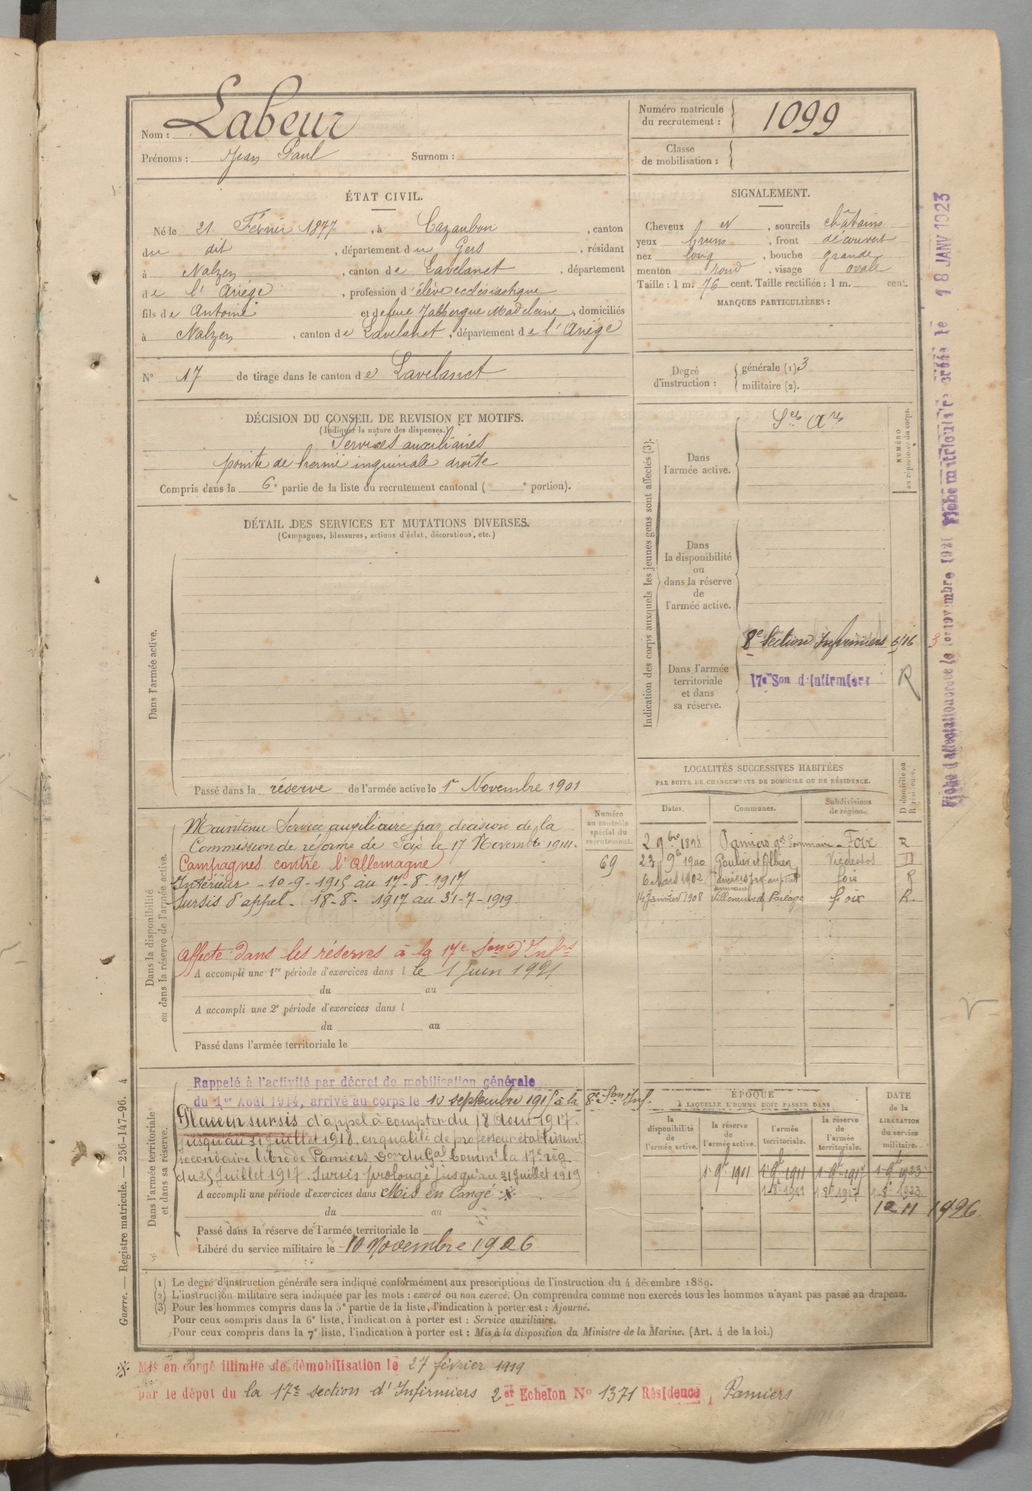 Nom : Labeur
Prénoms : Jean Paul Surnom :
Numéro matricule
du recrutement : 1099
Classe
de mobilisation :
ÉTAT CIVIL.
Né le 21 Février 1877, à Cazaubon, canton
du dit, département du Gers, résidant
à Nalzen, canton de Lavelanet, département
de l'Ariège, profession d'élève ecclésiastique
fils de Antoine et de feue Madeleine, domiciliés
à Nalzen, canton de Lavelanet, département de l'Ariège
N° 17 de tirage dans le canton de Lavelanet
SIGNALEMENT.
Cheveux et, sourcils châtains
yeux bruns, front découvert
nez long, bouche grande
menton rond, visage ovale
Taille : 1 m. 76 cent. Taille rectifiée : 1 m. cent.
MARQUES PARTICULIÈRES :
Degré
d'instruction :
générale (1) 3
militaire (2).
DÉCISION DU CONSEIL DE REVISION ET MOTIFS.
(Indiquer la nature des dispenses.)
Services auxiliaires
pointe de hernie inguinale droite
Compris dans la 6e partie de la liste du recrutement cantonal ( e portion).
DÉTAIL DES SERVICES ET MUTATIONS DIVERSES.
(Campagnes, blessures, actions d'éclat, décorations, etc.)
Dans l'armée active.
Passé dans la réserve de l'armée active le 1er Novembre 1901
Indication des corps auxquels les jeunes gens sont affectés (3).
Dans
l'armée active.
Ses Ares
NUMÉRO
Dans
la disponibilité
ou
dans la réserve
de
l'armée active.
Dans l'armée
territoriale
et dans
sa réserve.
8e Section Infirmiers 6/16 3
17e Son d'Infirmiers R
Dans la disponibilité
ou dans la réserve de l'armée active.
Numéro
au contrôle
spécial du
recrutement.
69
Maintenu Service auxiliaire par décision de la
Commission de réforme de Foix le 17 Novembre 1914.
Campagnes contre l'Allemagne
Intérieur - 10-9-1915 au 17-8-1917
Sursis d'appel - 18-8-1917 au 31-7-1919
Affecté dans les réserves à la 17e Son d'Infrs
A accompli une 1re période d'exercices dans l le 1 Juin 1921
du au
A accompli une 2e période d'exercices dans l
du au
Passé dans l'armée territoriale le
LOCALITÉS SUCCESSIVES HABITÉES
PAR SUITE DE CHANGEMENTS DE DOMICILE OU DE RÉSIDENCE.
Dates. Communes. Subdivisions
de région. D domicile ou
R résidence.
2 9bre 1898 Pamiers Foix R
23 9bre 1900 Vicdessos D
6 Mars 1902 Foix R
14 Janvier 1908 Foix R
Dans l'armée territoriale
et dans sa réserve.
Rappelé à l'activité par décret de mobilisation générale
du 1er Août 1914, arrivé au corps le 10 septembre 1915 à la 8e Son Inf.
Placé en sursis d'appel à compter du 18 Aout 1917
jusqu'au 31 juillet 1918, en qualité de professeur établissemt
secondaire libre de Pamiers, Don du Gal Commt la 17e rég.
du 25 Juillet 1917 Sursis prolongé jusqu'au 31 juillet 1919
A accompli une période d'exercices dans Mis en Congé ※
du au
Passé dans la réserve de l'armée territoriale le
Libéré du service militaire le 10 Novembre 1926
ÉPOQUE
À LAQUELLE L'HOMME DOIT PASSER DANS
la
disponibilité
de
l'armée active. la réserve
de
l'armée active. l'armée
territoriale. la réserve
de
l'armée
territoriale.
DATE
de la
LIBÉRATION
du service
militaire.
1 9bre 1911 1 9bre 1917 1 9bre 1923
10 11 1926
(1) Le degré d'instruction générale sera indiqué conformément aux prescriptions de l'instruction du 4 décembre 1889.
(2) L'instruction militaire sera indiquée par les mots : exercé ou non exercé. On comprendra comme non exercés tous les hommes n'ayant pas passé au drapeau.
(3) Pour les hommes compris dans la 5e partie de la liste, l'indication à porter est : Ajourné.
Pour ceux compris dans la 6e liste, l'indication à porter est : Service auxiliaire.
Pour ceux compris dans la 7e liste, l'indication à porter est : Mis à la disposition du Ministre de la Marine. (Art. 4 de la loi.)
Guerre. — Registre matricule. — 256-147-96. 4
※ Mis en congé illimité de démobilisation le 27 février 1919
par le dépôt du la 17e section d'Infirmiers 2er Echelon N° 1371 Résidence, Pamiers
18 JANV 1923